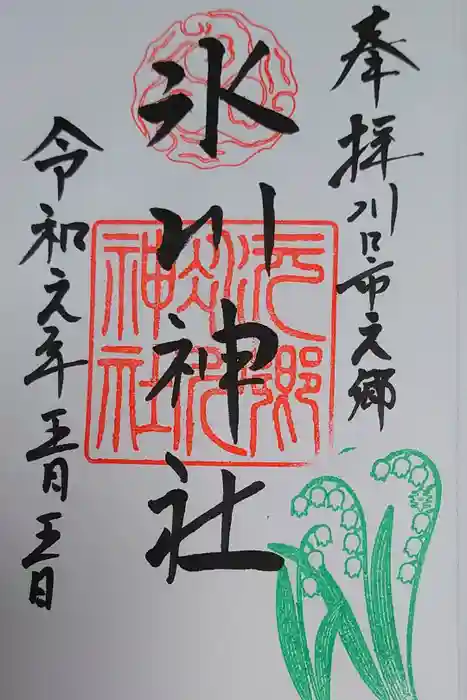 奉拝 川口市元郷
氷川神社
令和元年五月五日
元郷
氷川
神社